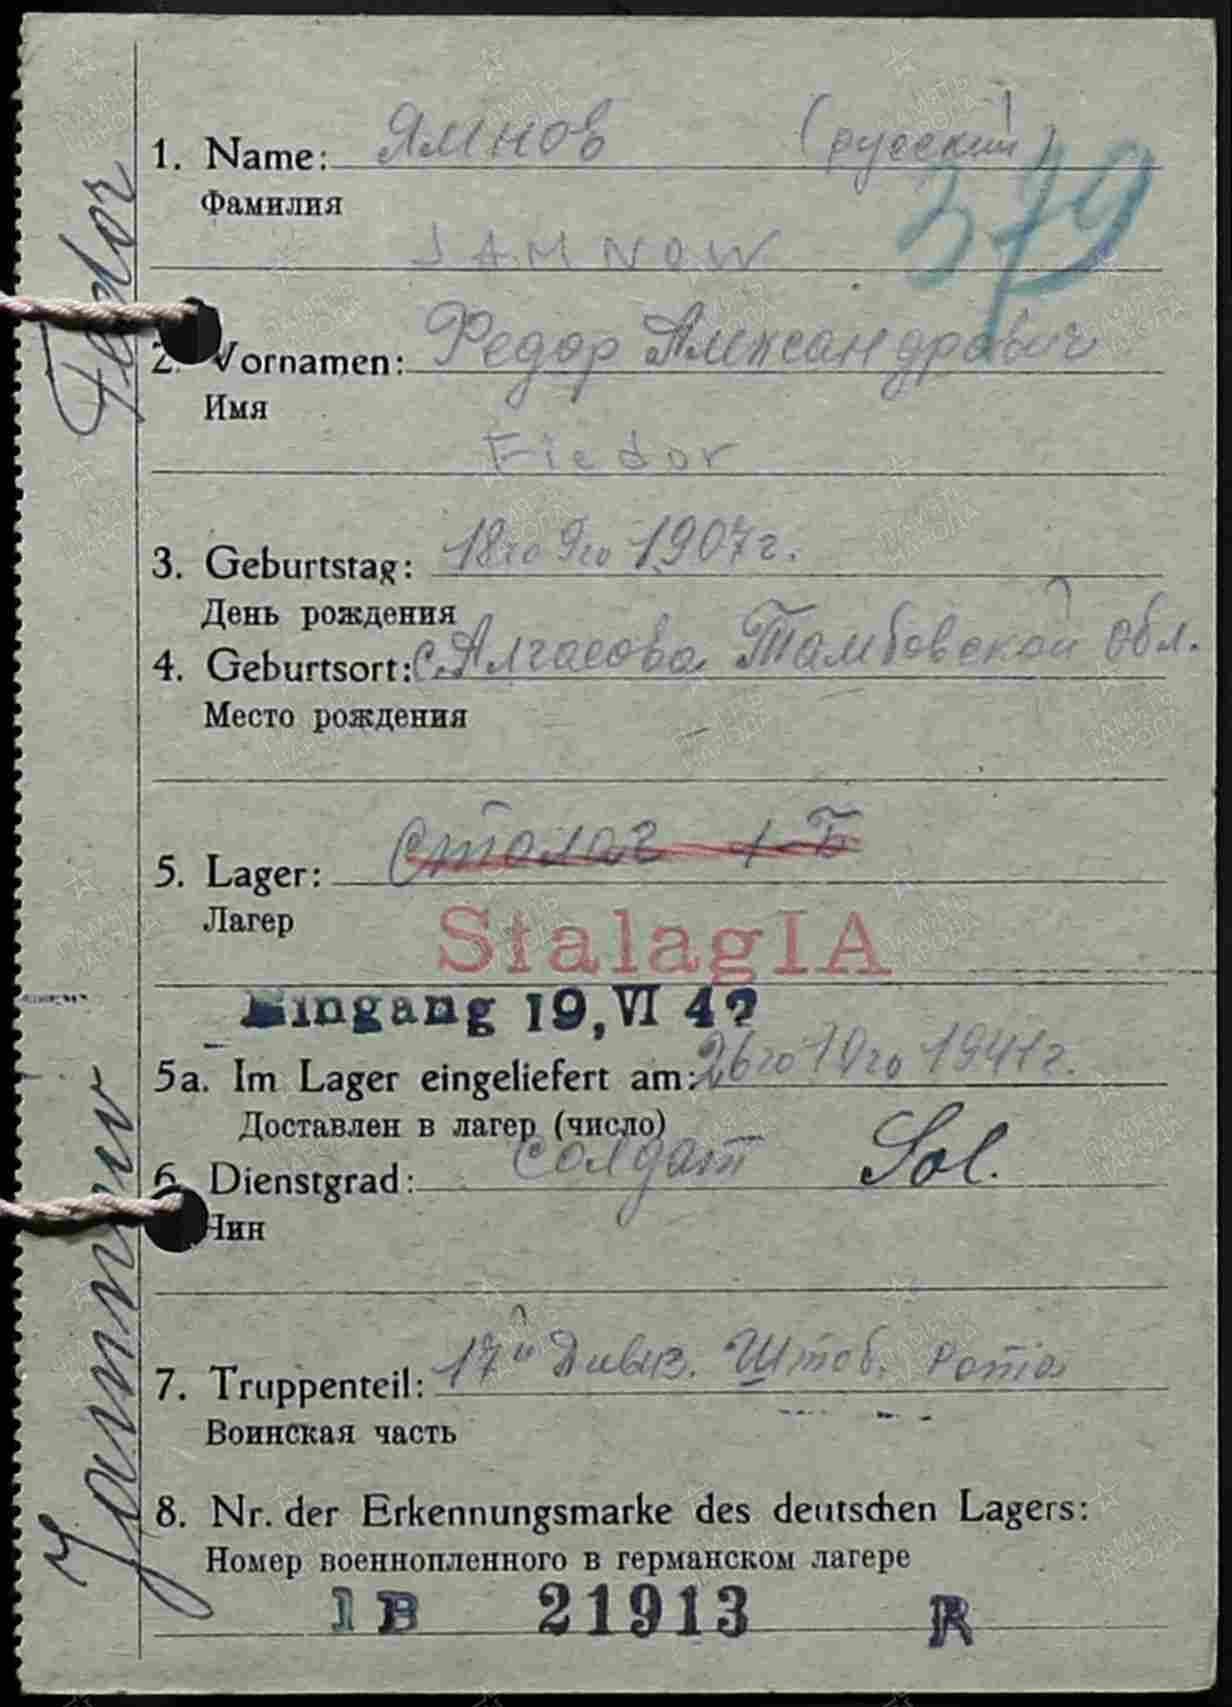 1. Name: Ямнов (русский)
Фамилия
379
JAMNOW
2. Vornamen: Федор Александрович
Имя
Fiedor
3. Geburtstag: 18го 9го 1907 г.
День рождения
4. Geburtsort: с. Алгасова. Тамбовской обл.
Место рождения
5. Lager: Сталаг 1-Б
Лагер
Stalag IA
Eingang 19, VI 42
5a. Im Lager eingeliefert am: 26го 10го 1941 г.
Доставлен в лагер (число)
6. Dienstgrad: солдат Sol.
Чин
7. Truppenteil: 17й Дивиз. Штоб. Рота
Воинская часть
8. Nr. der Erkennungsmarke des deutschen Lagers:
Номер военнопленного в германском лагере
1B 21913 R
Jamnow Fedor
ПАМЯТЬ НАРОДА